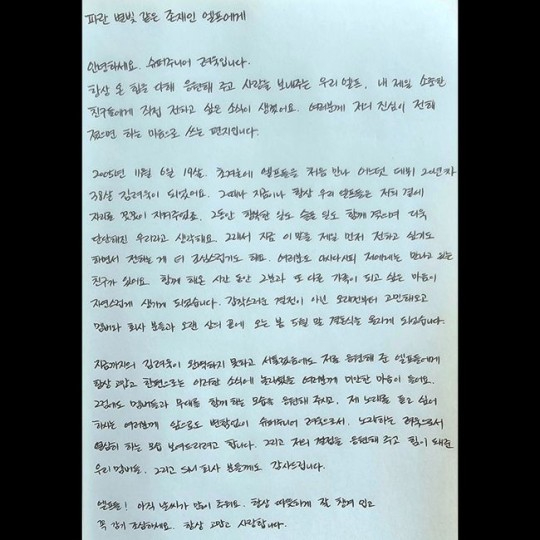 파란 별빛 같은 존재인 엘프에게
안녕하세요. 슈퍼주니어 려욱입니다.
항상 온 힘을 다해 응원해 주고 사랑을 보내주는 우리 엘프, 내 제일 소중한
친구들에게 직접 전하고 싶은 소식이 생겼어요. 여러분께 저의 진심이 전해
졌으면 하는 마음으로 쓰는 편지입니다.
2005년 11월 6일 19살, 초겨울에 엘프들을 처음 만나 어느덧 데뷔 20년차
38살 김려욱이 되었어요. 그때나 지금이나 항상 우리 엘프들은 저의 곁에
자리를 꿋꿋이 지켜주었죠. 그동안 행복한 일도 슬픈 일도 함께 겪으며 더욱
단단해진 우리라고 생각해요. 그래서 지금 이 말을 제일 먼저 전하고 싶기도
하면서 전하는 게 더 조심스럽기도 해요. 여러분도 아시다시피 저에게는 만나고 있는
친구가 있어요. 함께 해온 시간 동안 그분과 또 다른 가족이 되고 싶은 마음이
자연스럽게 생기게 되었습니다. 갑작스러운 결정이 아닌 오래전부터 고민해오고
멤버와 회사 분들과 오랜 상의 끝에 오는 봄 5월 말 결혼식을 올리게 되었습니다.
지금까지의 김려욱이 완벽하지 못하고 서툴렀음에도 저를 응원해 준 엘프들에게
항상 고맙고 한편으로는 이러한 소식에 놀라셨을 여러분께 미안한 마음이 들어요.
그럼에도 멤버들과 무대를 함께 하는 모습을 응원해 주시고, 제 노래를 듣고 싶어
하시는 여러분께 앞으로도 변함없이 슈퍼주니어 려욱으로서, 노래하는 려욱으로서
열심히 하는 모습 보여드리려고 합니다. 그리고 저의 결정을 응원해 주고 힘이 돼준
우리 멤버들, 그리고 SM 회사 분들께도 감사드립니다.
엘프들! 아직 날씨가 많이 추워요. 항상 따뜻하게 잘 챙겨 입고
꼭 감기 조심하세요. 항상 고맙고 사랑합니다.